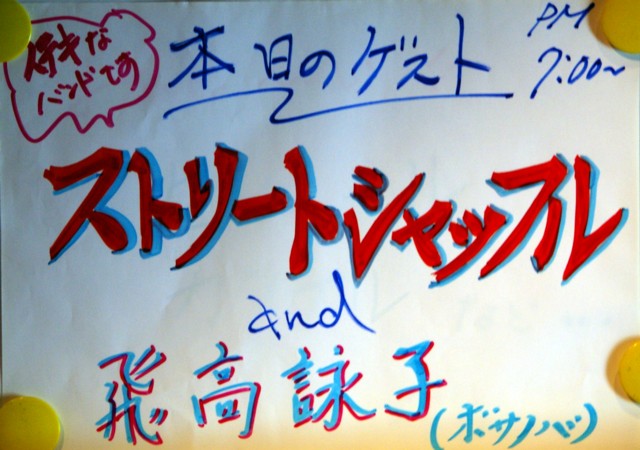 ステキな
バンドです
本日のゲスト
PM
7:00~
ストリートシャッフル
and
飛高詠子
(ボサノバ)